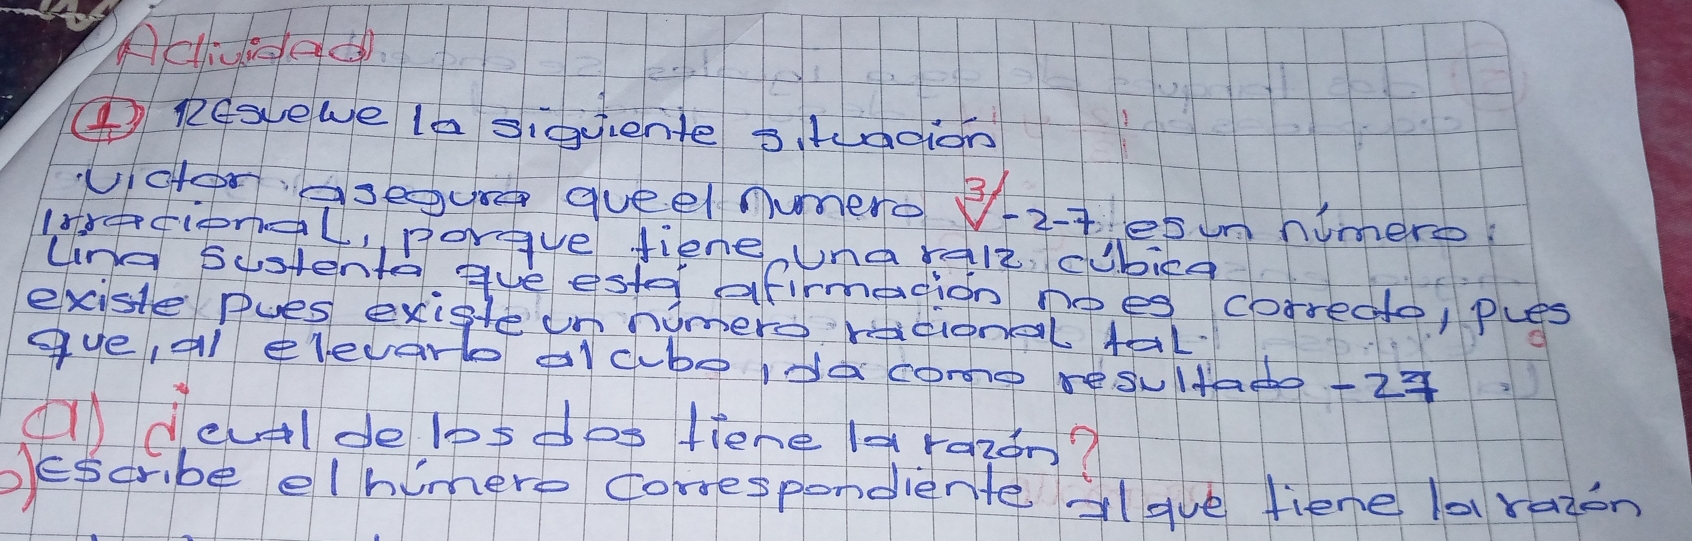 Actividad
① Resuelve la siguiente situación
Victor asegura que el numero ∛-2-7 es un número
irracional, porque tiene una raíz cúbica
Lina sustenta que está afirmación no es correcto, pues
existe pues existe un número racional tal
que, al elevarlo al cubo, da como resultado -27
a) ¿cual de los dos tiene la razón?
b) escribe el número correspondiente al que tiene la razón